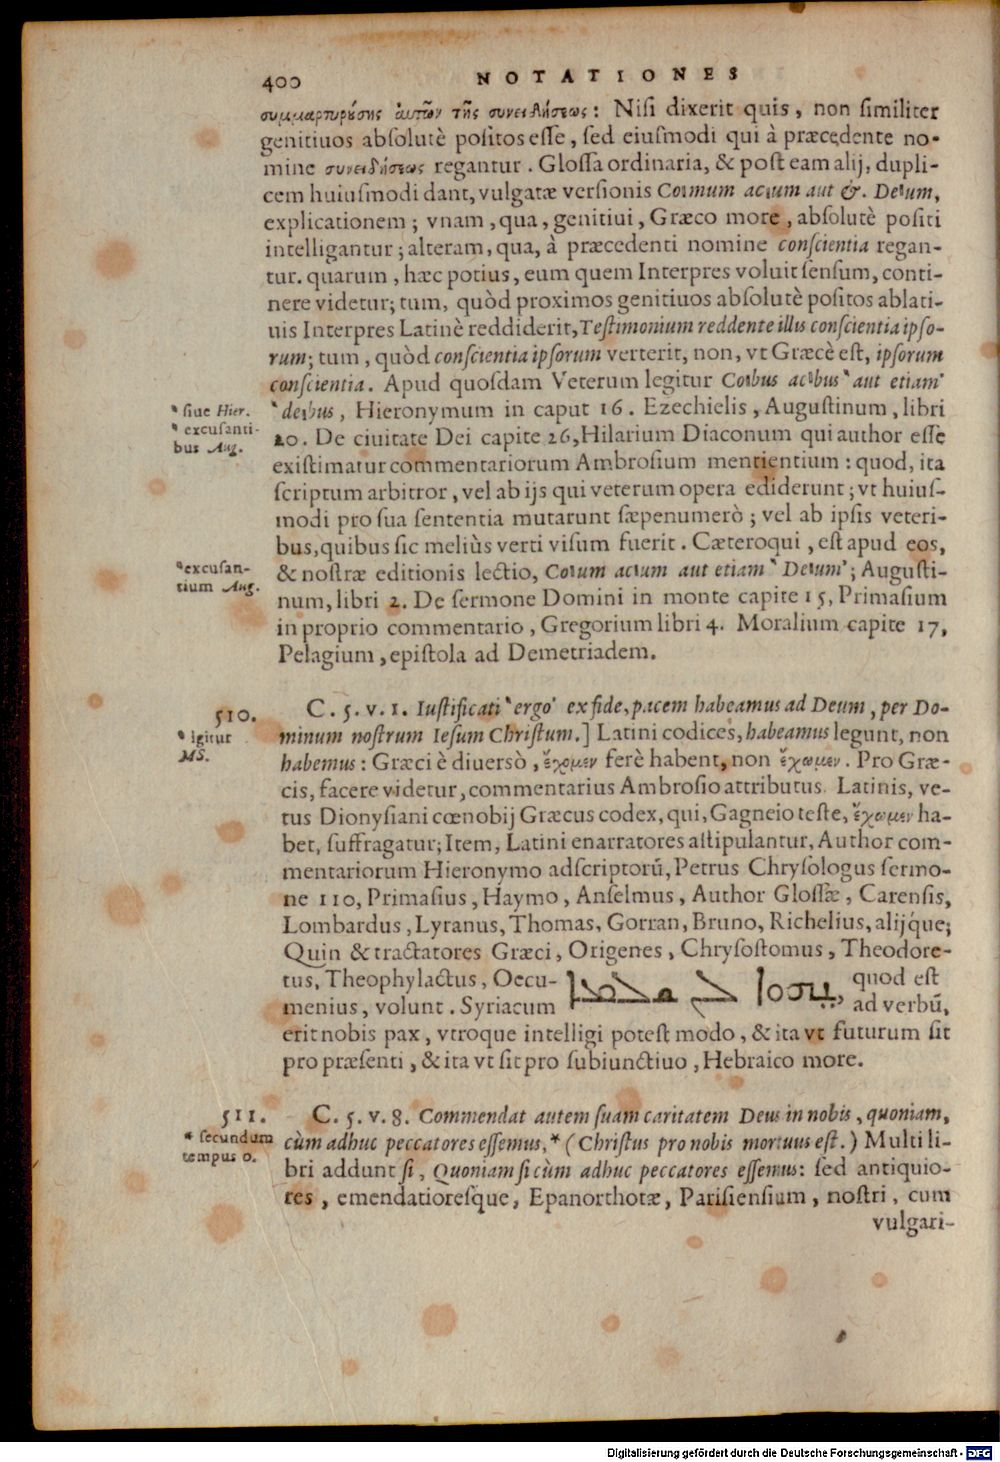 400 NOTATIONES
συμμαρτυρύσης αὐτῶν τῆς συνειδήσεως: Nisi dixerit quis, non similiter
genitiuos absolutè positos esse, sed eiusmodi qui à præcedente no-
mine συνειδήσεως regantur. Glossa ordinaria, & post eam alij, dupli-
cem huiusmodi dant, vulgatæ versionis
explicationem; vnam, qua, genitiui, Græco more, absolutè positi
intelligantur; alteram, qua, à præcedenti nomine conscientia regan-
tur. quarum, hæc potius, eum quem Interpres voluit sensum, conti-
nere videtur; tum, quòd proximos genitiuos absolutè positos ablati-
uis Interpres Latinè reddiderit, Testimonium reddente illis conscientia ipso-
rum; tum, quòd conscientia ipsorum verterit, non, vt Græcè est, ipsorum
conscientia. Apud quosdam Veterum legitur aut etiam
` siue Hier.
` excusanti-
bus Aug.
Hieronymum in caput 16. Ezechielis, Augustinum, libri
20. De ciuitate Dei capite 26, Hilarium Diaconum qui author esse
existimatur commentariorum Ambrosium mentientium: quod, ita
scriptum arbitror, vel ab ijs qui veterum opera ediderunt; vt huius-
modi pro sua sententia mutarunt sæpenumerò; vel ab ipsis veteri-
bus, quibus sic meliùs verti visum fuerit. Cæteroqui, est apud eos,
` excusan-
tium Aug.
& nostræ editionis lectio, aut etiam Augusti-
num, libri 2. De sermone Domini in monte capite 15, Primasium
in proprio commentario, Gregorium libri 4. Moralium capite 17,
Pelagium, epistola ad Demetriadem.
510.
` igitur
MS.
C. 5. v. 1. Iustificati `ergo´ ex fide, pacem habeamus ad Deum, per Do-
minum nostrum Iesum Christum.] Latini codices, habeamus legunt, non
habemus: Græci è diuersò, ἔχομεν ferè habent, non ἔχωμεν. Pro Græ-
cis, facere videtur, commentarius Ambrosio attributus. Latinis, ve-
tus Dionysiani cœnobij Græcus codex, qui, Gagneio teste, ἔχωμεν ha-
bet, suffragatur; Item, Latini enarratores astipulantur, Author com-
mentariorum Hieronymo adscriptorũ, Petrus Chrysologus sermo-
ne 110, Primasius, Haymo, Anselmus, Author Glossæ, Carensis,
Lombardus, Lyranus, Thomas, Gorran, Bruno, Richelius, alijque;
Quin & tractatores Græci, Origenes, Chrysostomus, Theodore-
tus, Theophylactus, Oecu-
menius, volunt. Syriacum
quod est
ad verbũ,
erit nobis pax, vtroque intelligi potest modo, & ita vt futurum sit
pro præsenti, & ita vt sit pro subiunctiuo, Hebraico more.
511.
* secundum
tempus o.
C. 5. v. 8. Commendat autem suam caritatem Deus in nobis, quoniam,
cùm adhuc peccatores essemus,* (Christus pro nobis mortuus est.) Multi li-
bri addunt si, Quoniam si cùm adhuc peccatores essemus: sed antiquio-
res, emendatioresque, Epanorthotæ, Parisiensium, nostri, cum
vulgari-
Digitalisierung gefördert durch die Deutsche Forschungsgemeinschaft - DFG